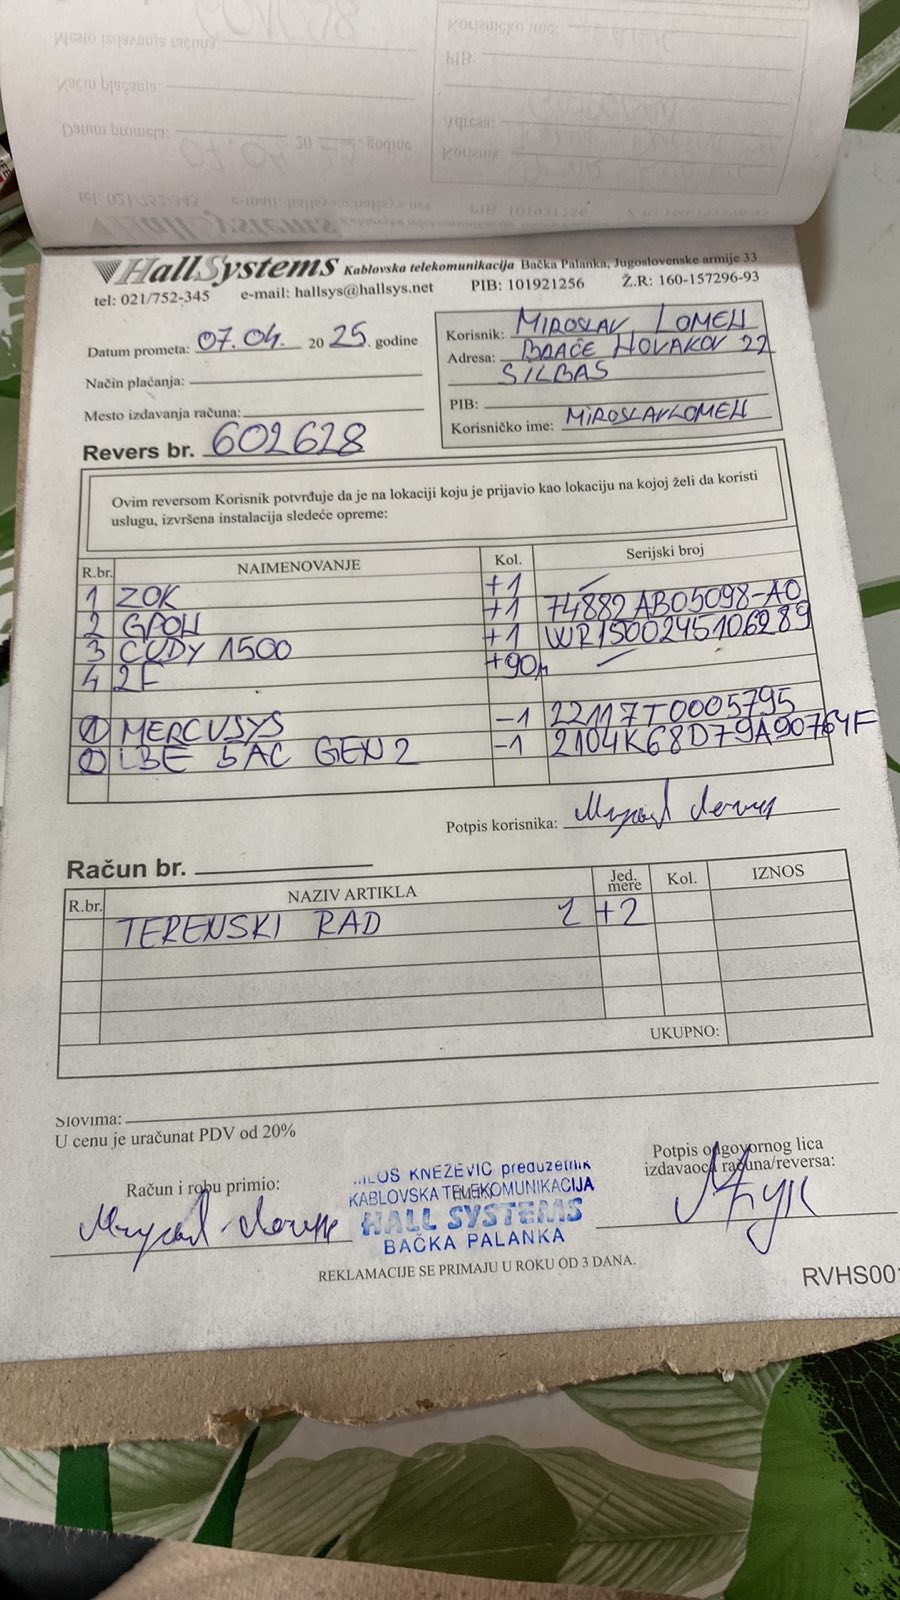 HallSystems Kablovska telekomunikacija Bačka Palanka, Jugoslovenske armije 33
tel: 021/752-345 e-mail: hallsys@hallsys.net PIB: 101921256 Ž.R: 160-157296-93
Datum prometa: 07.04. 2025. godine
Način plaćanja:
Mesto izdavanja računa:
Revers br. 602628
Korisnik: MIROSLAV LOMEN
Adresa: BRAĆE NOVAKOV 22
SILBAŠ
PIB:
Korisničko ime: MIROSLAVLOMEN
Ovim reversom Korisnik potvrđuje da je na lokaciji koju je prijavio kao lokaciju na kojoj želi da koristi
uslugu, izvršena instalacija sledeće opreme:
R.br. NAIMENOVANJE Kol. Serijski broj
1 ZOK +1
2 GPON +1 74882AB05098-A0
3 CUDY 1500 +1 WR1500245106289
4 2F +90m
1 MERCUSYS -1 22117T0005795
2 LBE 5AC GEN2 -1 2104K68D79A90764F
Potpis korisnika:
Račun br.
R.br. NAZIV ARTIKLA Jed. mere Kol. IZNOS
TERENSKI RAD 2 +2
UKUPNO:
Slovima:
U cenu je uračunat PDV od 20%
Račun i robu primio:
MILOŠ KNEŽEVIĆ preduzetnik
KABLOVSKA TELEKOMUNIKACIJA
HALL SYSTEMS
BAČKA PALANKA
Potpis odgovornog lica
izdavaoca računa/reversa:
REKLAMACIJE SE PRIMAJU U ROKU OD 3 DANA.
RVHS001